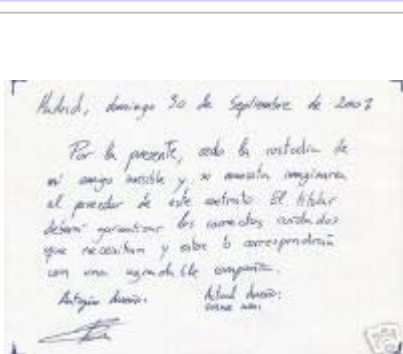 Madrid, domingo 30 de Septiembre de 2007
Por la presente, cedo la custodia de
mi amigo invisible y su mascota imaginaria
al poseedor de este contrato. El titular
deberá garantizar los correctos cuidados
que necesitan y estos le corresponderán
con una agradable compañía.
Antiguo dueño: Actual dueño: